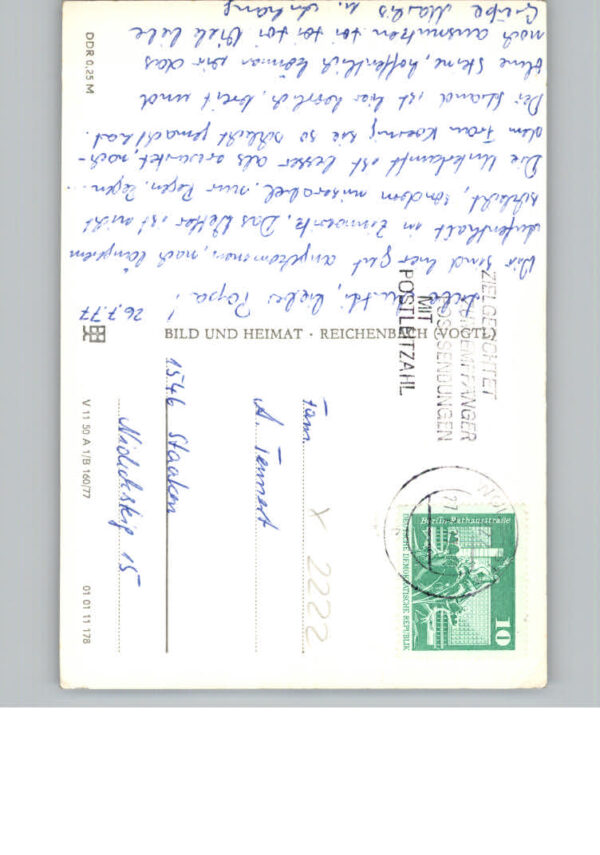 26.7.77
Liebe Mutti, lieber Papa!
Wir sind hier gut angekommen, nach längerem
Aufenthalt in Zinnowitz. Das Wetter ist nicht
schlecht, sondern miserabel, nur Regen, Regen.
Die Unterkunft ist besser als erwartet, nach-
dem Frau Koenig sie so schlecht gemacht hat.
Der Strand ist hier herrlich, breit und
ohne Steine, hoffentlich können wir das
noch ausnutzen toi toi toi Viele liebe
Grüße u. Anhang
DDR 0,25 M
BILD UND HEIMAT · REICHENBACH (VOGTL)
V 11 50 A 1/B 160/77
01 01 11 178
ZIELGERICHTET
ZUM EMPFÄNGER
SENDUNGEN
MIT
POSTLEITZAHL
Berlin-Rathausstraße
DEUTSCHE DEMOKRATISCHE REPUBLIK
10
Fam.
A. Tennert
1546 Staaken
15
x 2222